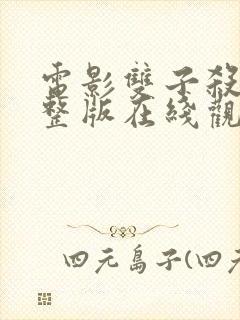 電影雙子殺
整版在綫觀
四元島子(四元